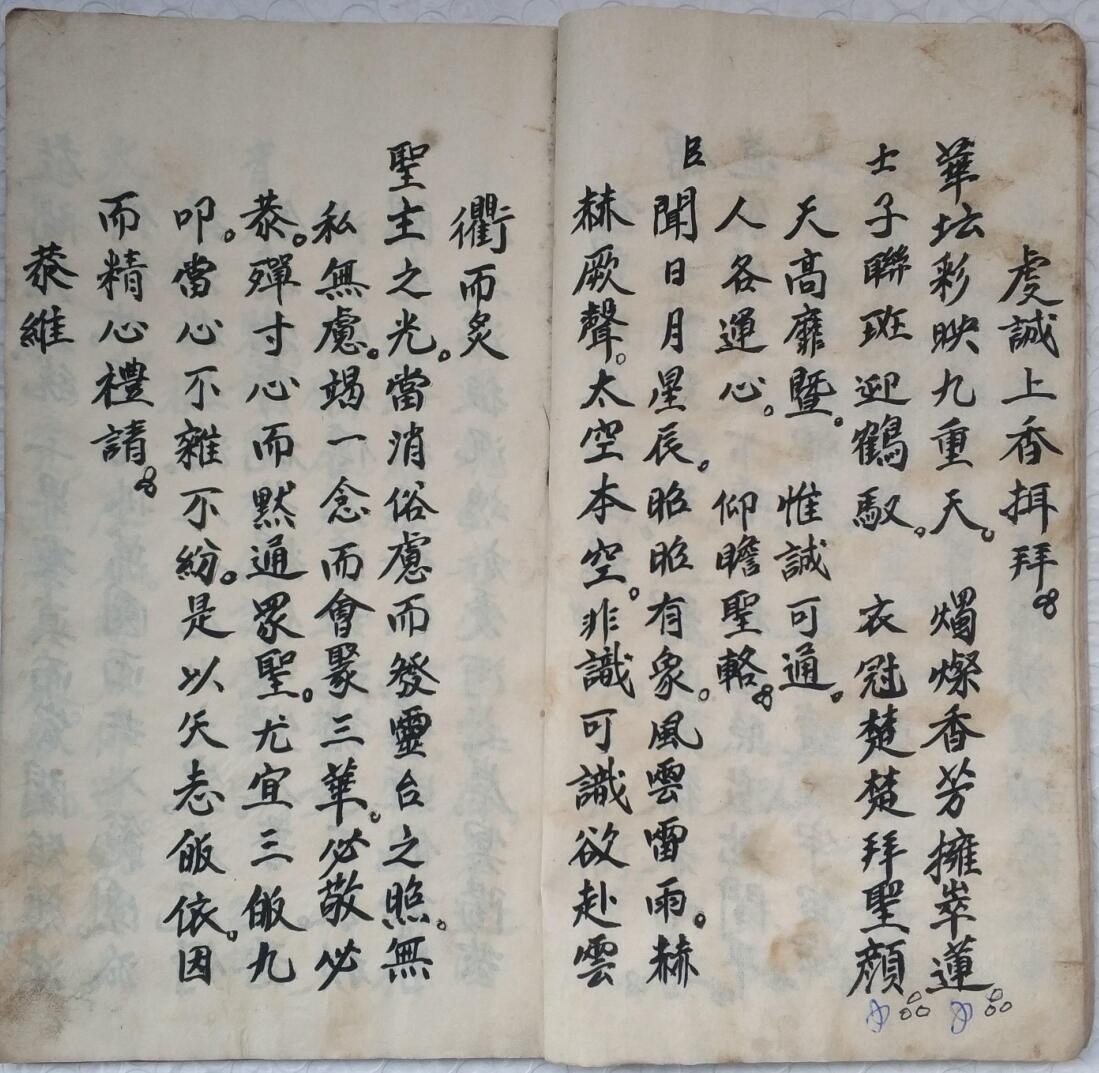 虔誠上香揖拜
華坛彩映九重天。 燭燦香芳擁萃蓮
士子聯班迎鶴馭。 衣冠楚楚拜聖顏
天高靡暨。 惟誠可通。
人各運心。 仰瞻聖輅
臣聞日月星辰。昭昭有象。風雲雷雨。赫
赫厥聲。太空本空。非識可識欲赴雲
衢而炙
聖主之光。當消俗慮而發靈台之照。無
私無慮。竭一念而會聚三華。必敬必
恭。殫寸心而默通眾聖。尤宜三皈九
叩。當心不雜不紛。是以矢志皈依。因
而精心禮請
恭維